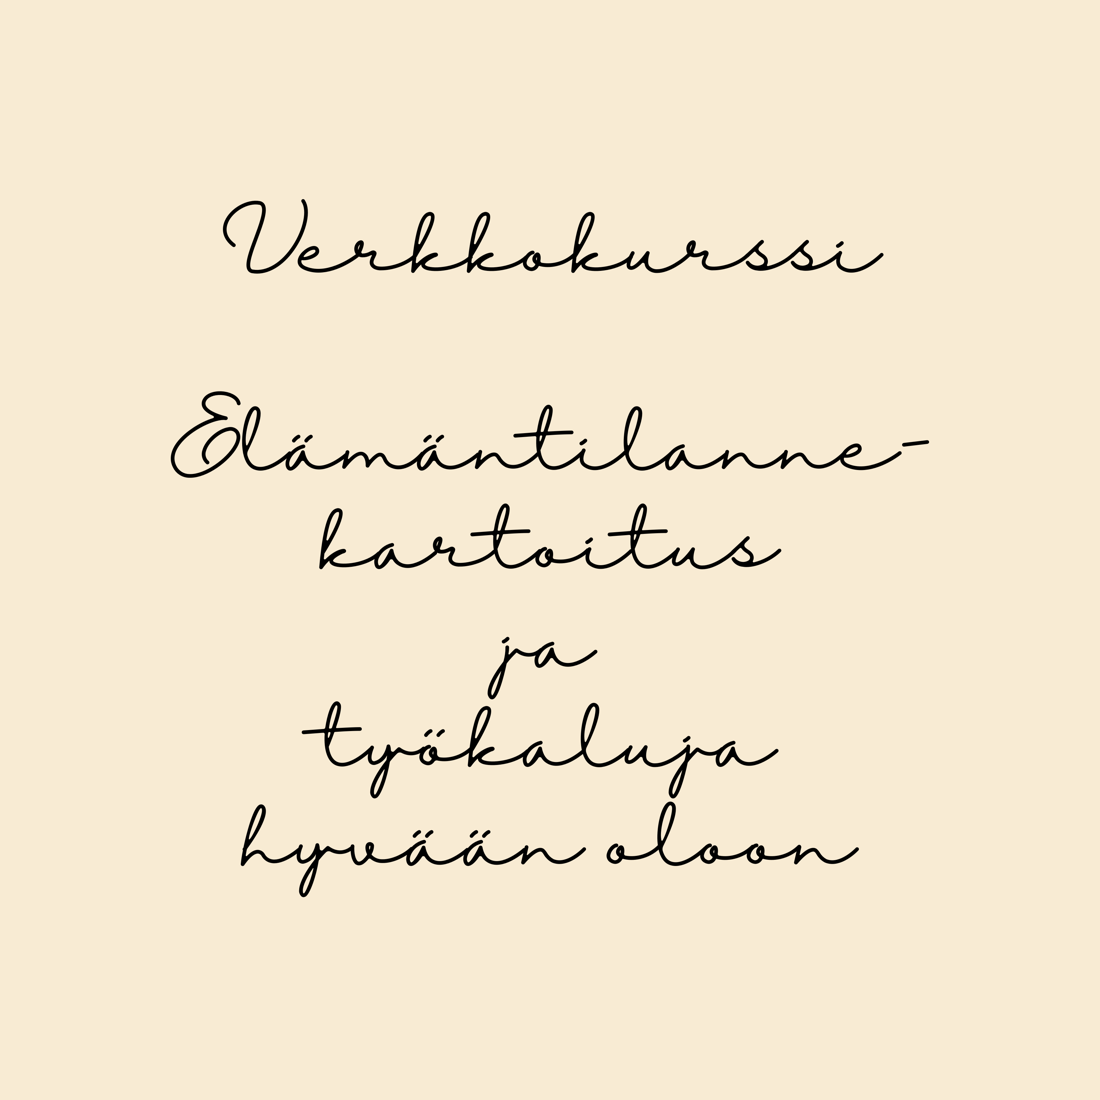 Verkkokurssi
Elämäntilanne-
kartoitus
ja
työkaluja
hyvään oloon